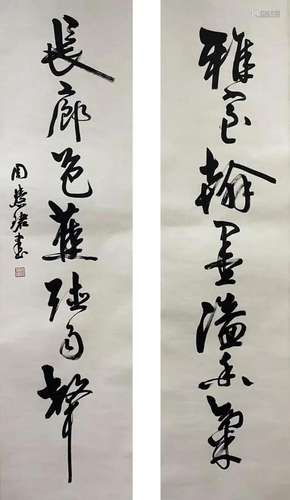 雅室翰墨溢香氣
長廊芭蕉聽雨聲
周慧珺書